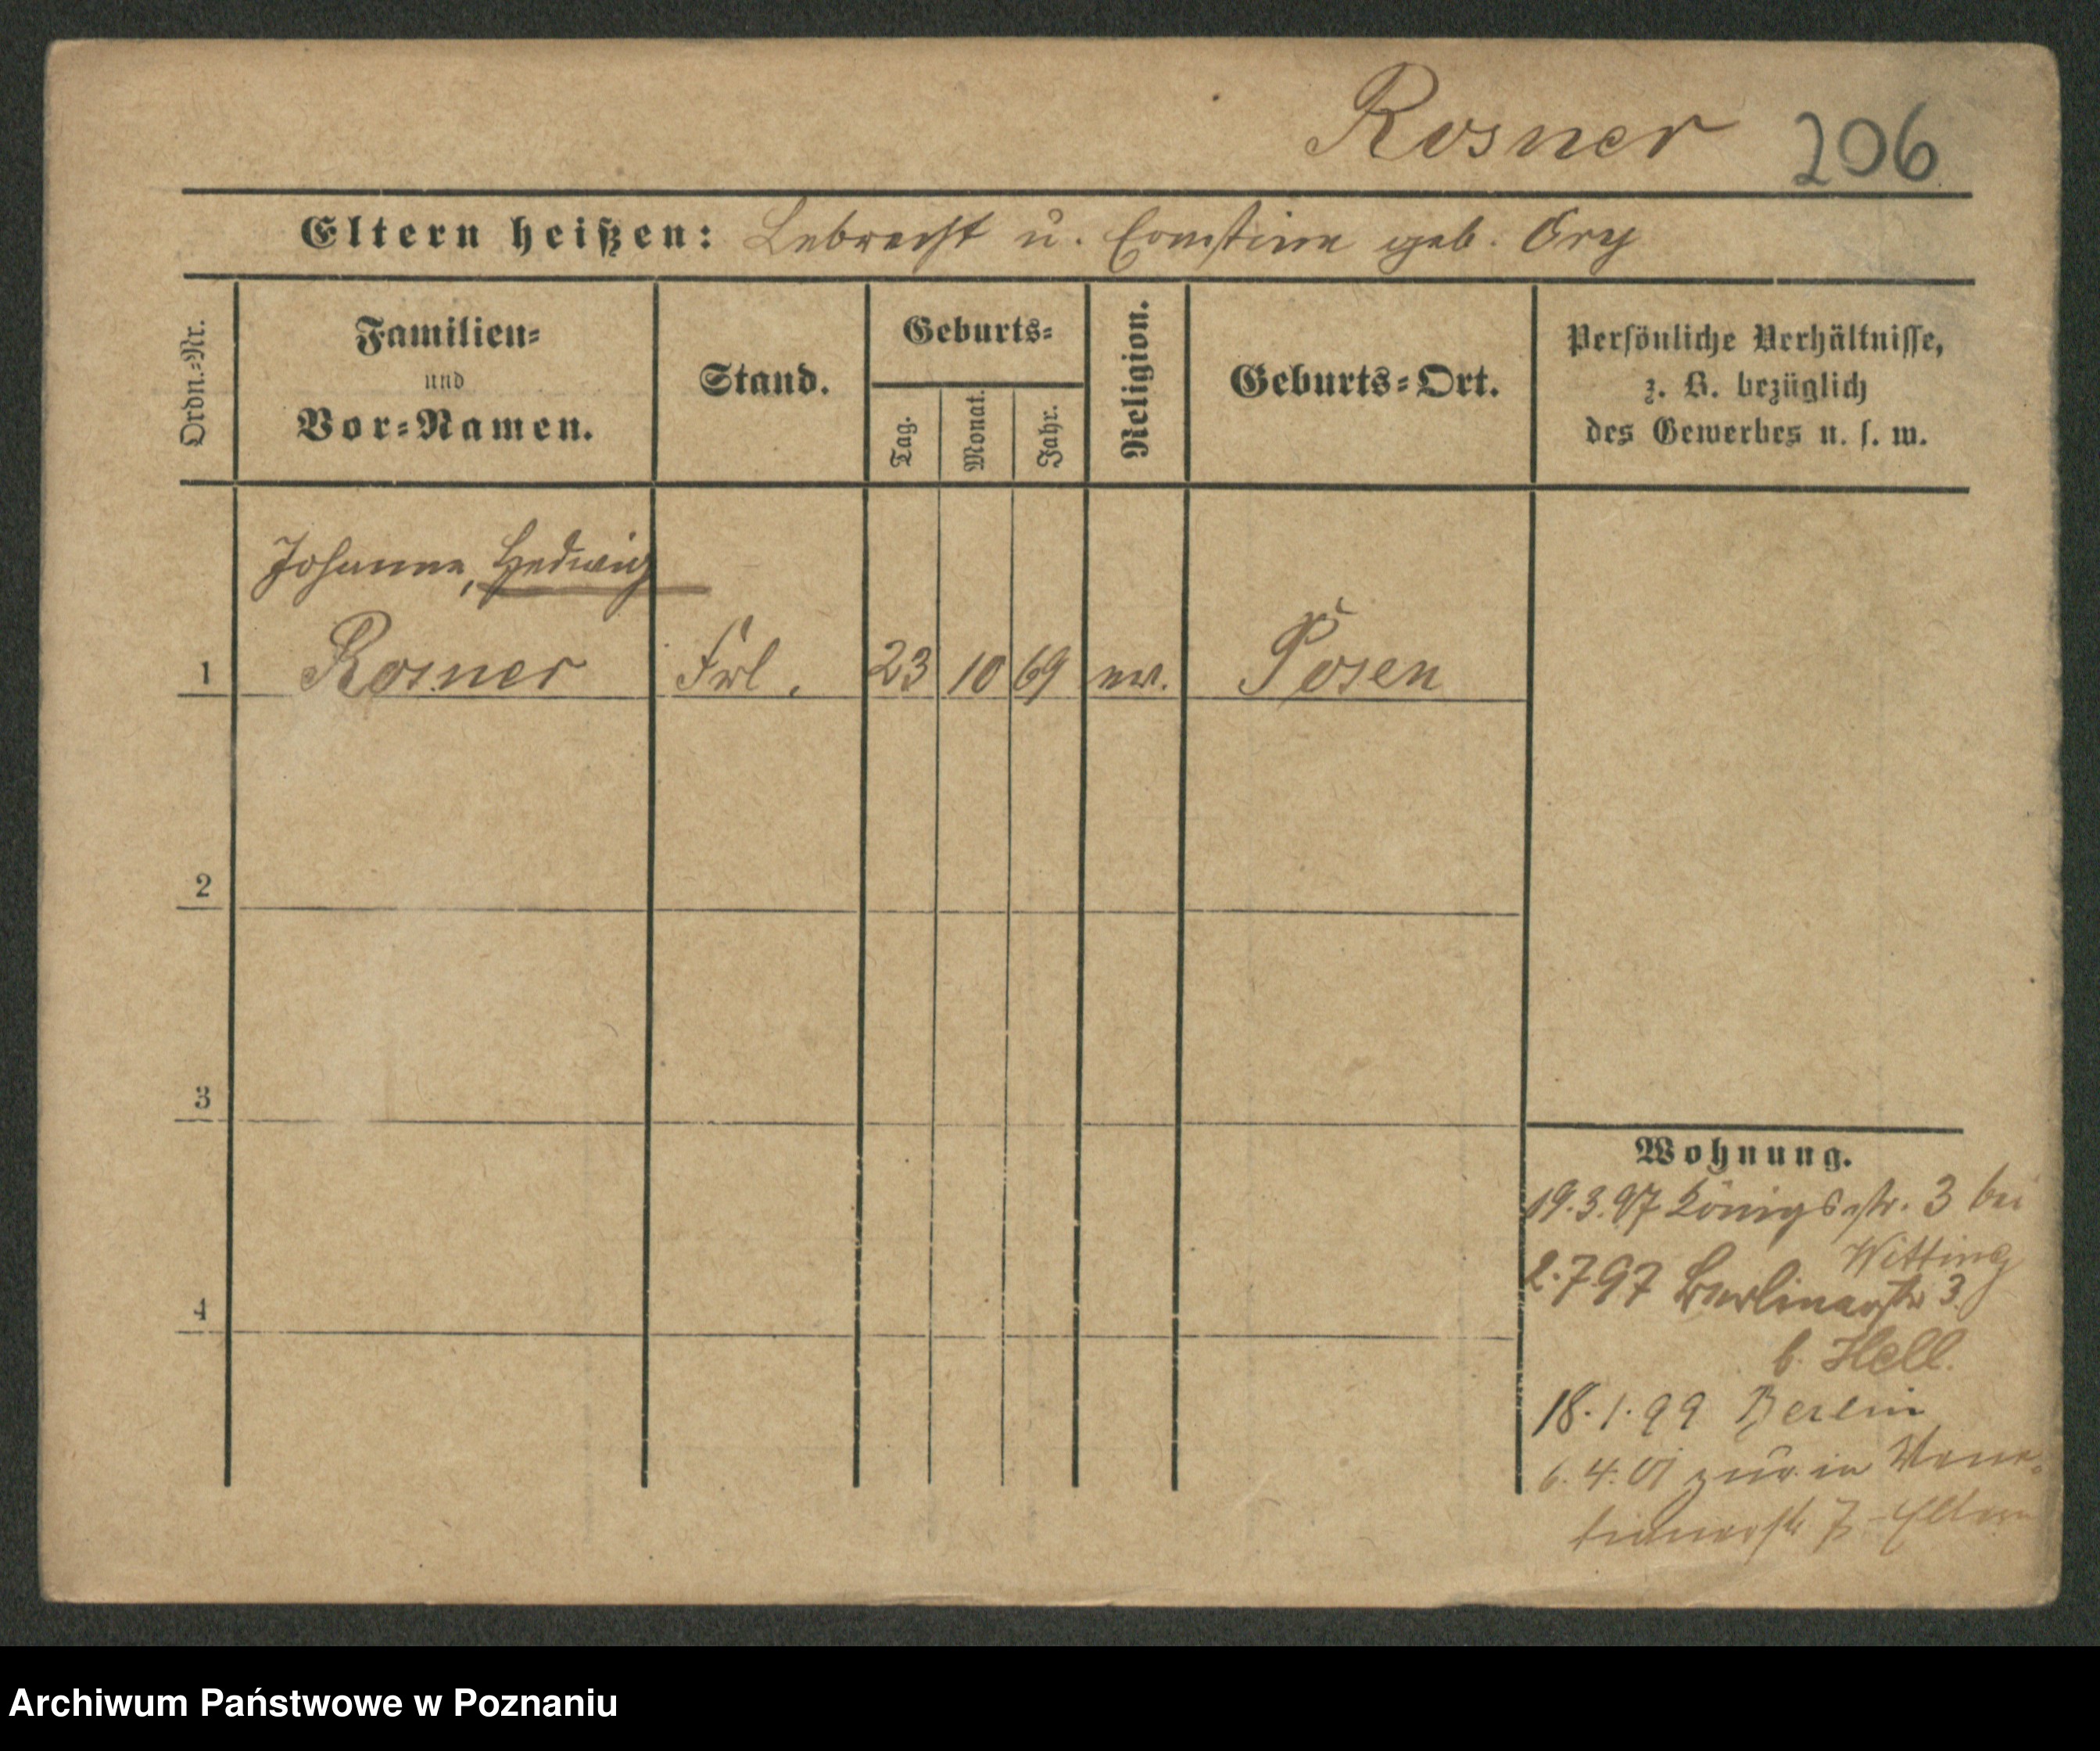 Rosner 206
Eltern heißen: Lebrecht u. Ernstine geb. Ory
Ordn.-Nr.
Familien-
und
Vor-Namen.
Stand.
Geburts-
Tag.
Monat.
Jahr.
Religion.
Geburts-Ort.
Persönliche Verhältnisse,
z. B. bezüglich
des Gewerbes u. s. w.
Johanna, Hedwig
1 Rosner Frl. 23 10 69 ev. Posen
2
3
4
Wohnung.
19.3.97 Königsstr. 3 bei
Witting
2.7 97 Berlinerstr 3.
b. Hell.
18.1.99 Berlin
6.4.01 zur. in
7 - Eltern
Archiwum Państwowe w Poznaniu